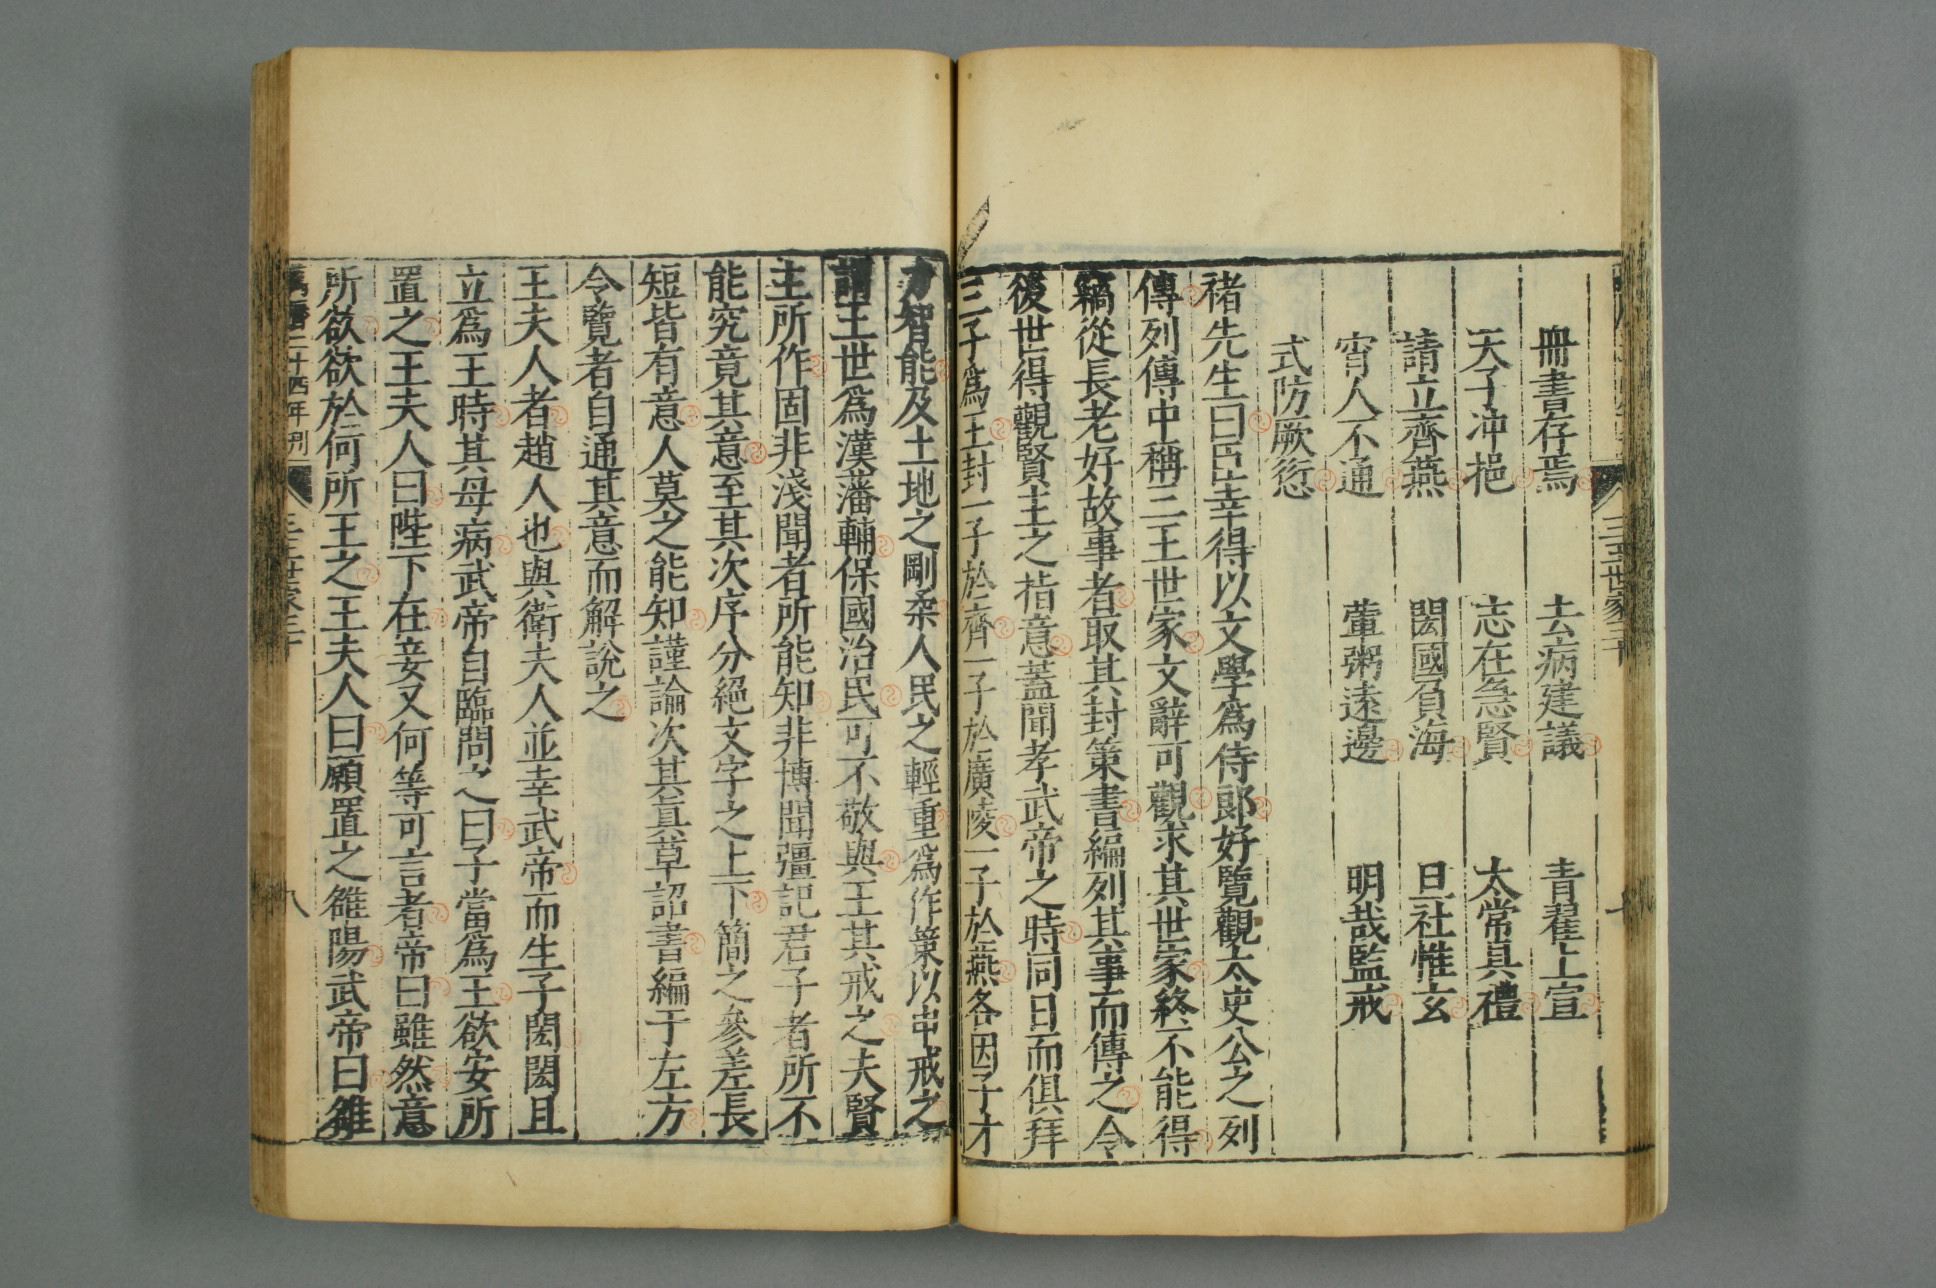 三王世家三十
冊書存焉 去病建議 青翟上宣
天子沖挹 志在急賢 太常具禮
請立齊燕 閎國負海 旦社惟玄
宵人不通 葷粥遠邊 明哉監戒
式防厥愆
褚先生曰臣幸得以文學爲侍郎好覽觀太史公之列
傳列傳中稱三王世家文辭可觀求其世家終不能得
竊從長老好故事者取其封策書編列其事而傳之令
後世得觀賢主之指意蓋聞孝武帝之時同日而俱拜
三子爲王封一子於齊一子於廣陵一子於燕各因子才
力智能及土地之剛柔人民之輕重爲作策以申戒之
謂王世爲漢藩輔保國治民可不敬與王其戒之夫賢
主所作固非淺聞者所能知非博聞彊記君子者所不
能究竟其意至其次序分絕文字之上下簡之參差長
短皆有意人莫之能知謹論次其眞草詔書編于左方
令覽者自通其意而解說之
王夫人者趙人也與衛夫人並幸武帝而生子閎閎且
立爲王時其母病武帝自臨問之曰子當爲王欲安所
置之王夫人曰陛下在妾又何等可言者帝曰雖然意
所欲欲於何所王之王夫人曰願置之雒陽武帝曰雒
萬曆二十四年刊
三王世家三十
八